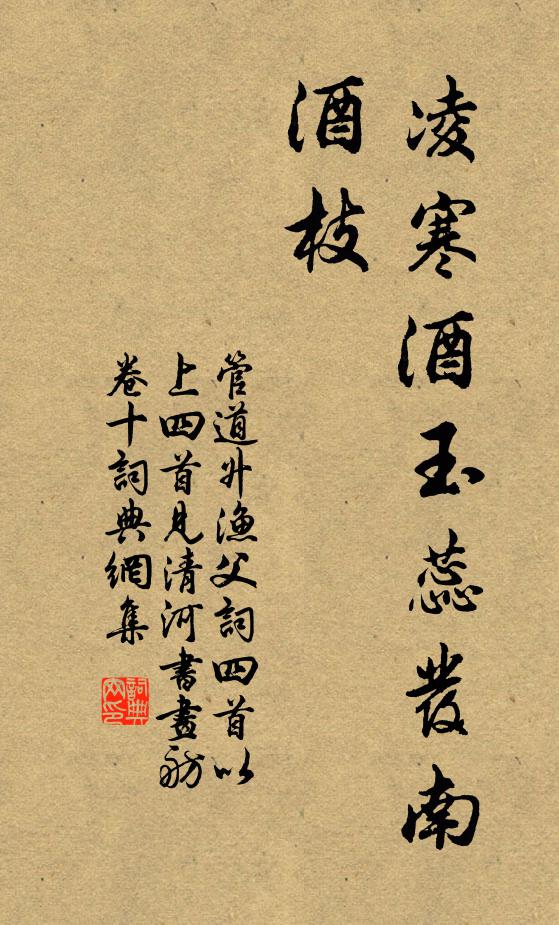 凌寒酒玉蕊發南
酒枝
管道升漁父詞四首以
上四首見清河書畫舫
卷十詞典網集
詞典
网印